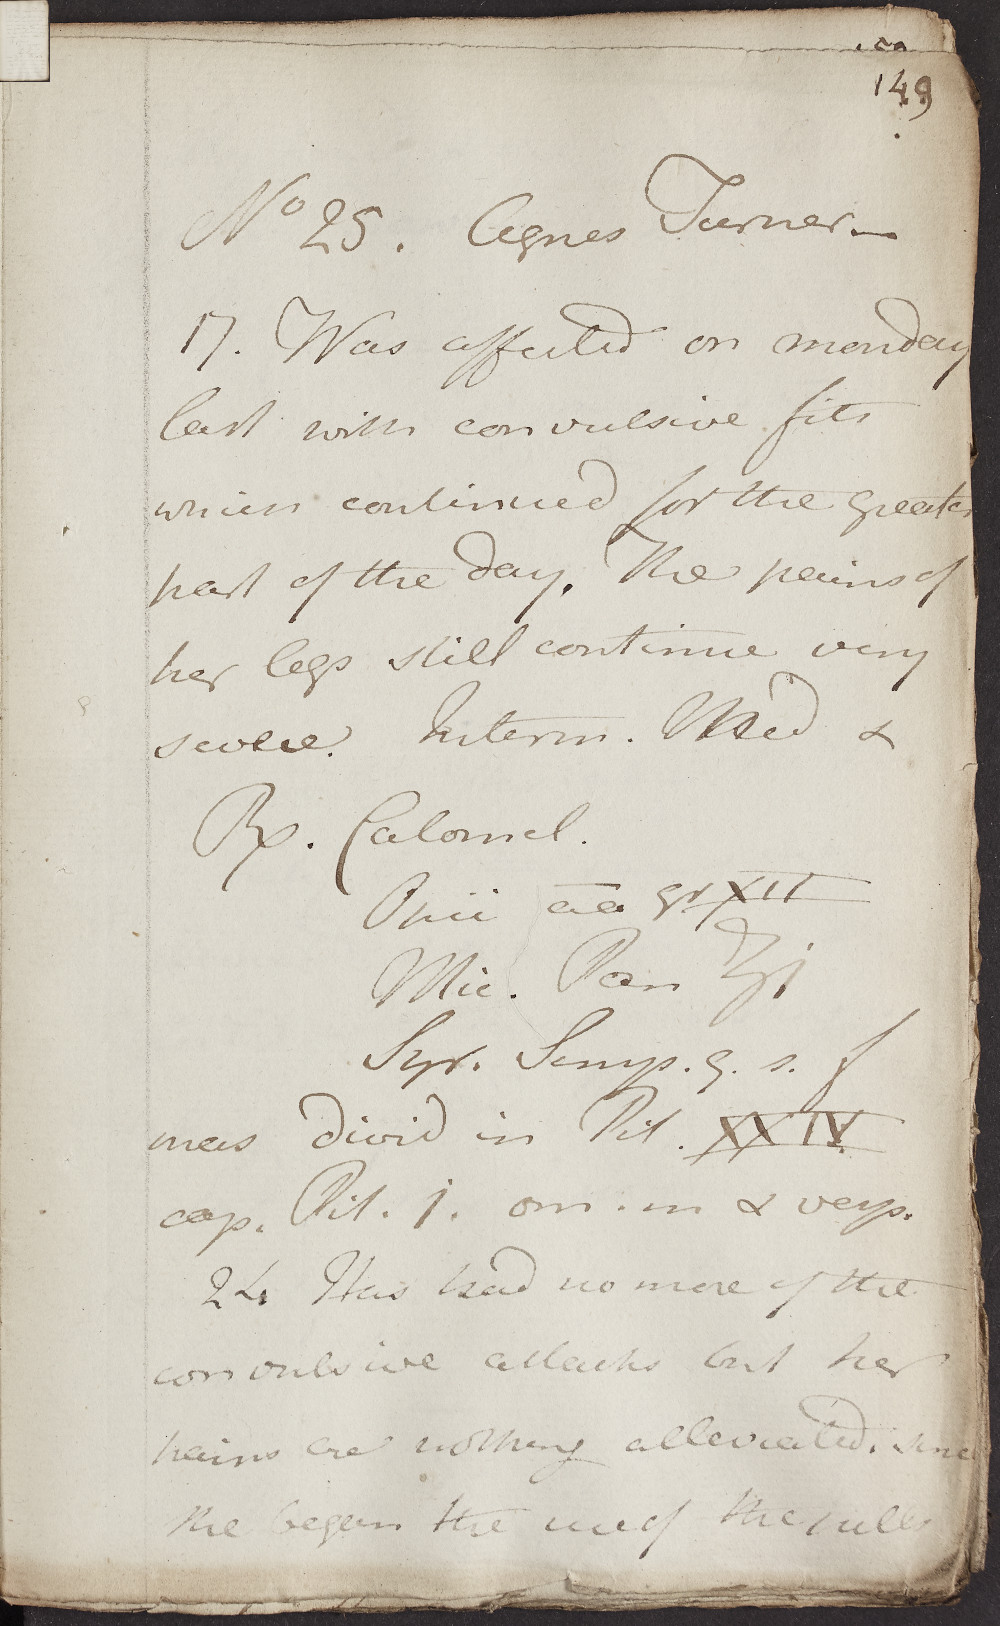 149
No 25. Agnes Turner
17. Was affected on monday
last with convulsive fits
which continued for the greater
part of the day. The pains of
her legs still continue very
severe. Interm. Med &
Rx. Calomel.
Opii aa gr XII
Mic. Pan ʒj
Syr. Simp. q. s. f
mas divid in Pil. XXIV.
cap. Pil. j. om. m & vesp.
24. Has had no more of the
convulsive attacks but her
pains are nothing alleviated. since
she began the use of the pills